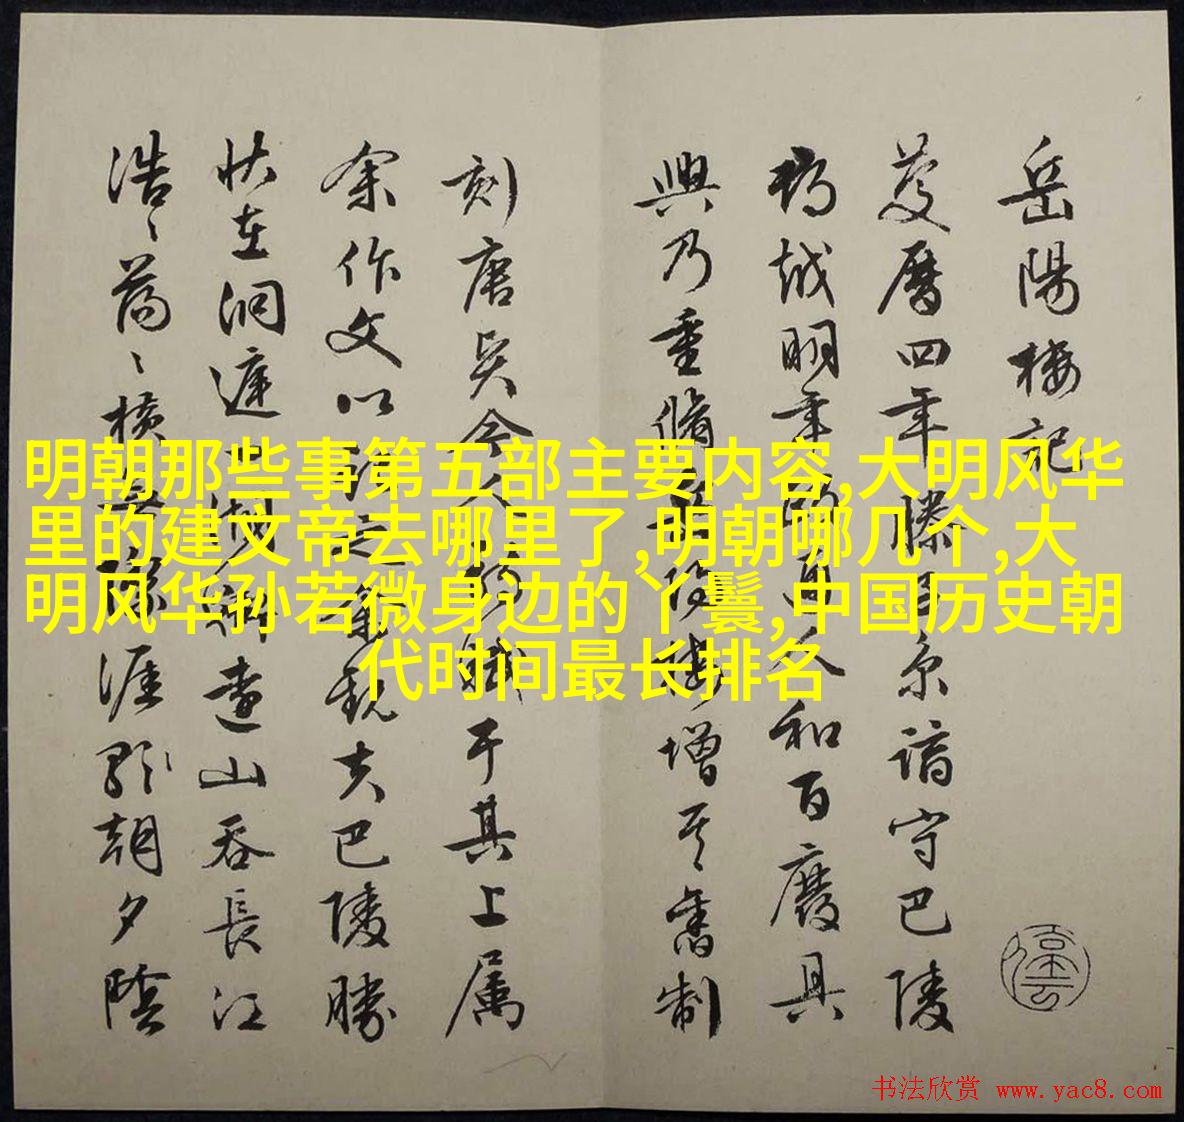 岳陽樓記
慶曆四年滕子京謫守巴陵
郡越明年政通人和百廢具
興乃重脩岳陽樓增其舊制
刻唐吳今人詩賦于其上屬
余作文以記之予觀夫巴陵勝
狀在洞庭一湖銜遠山吞長江
浩〻蕩〻橫無際涯朝夕陰
明朝那些事第五部主要内容,大明风华
里的建文帝去哪里了,明朝哪几个,大
明风华孙若微身边的丫鬟,中国历史朝
代时间最长排名
书法欣赏 www.yac8.com